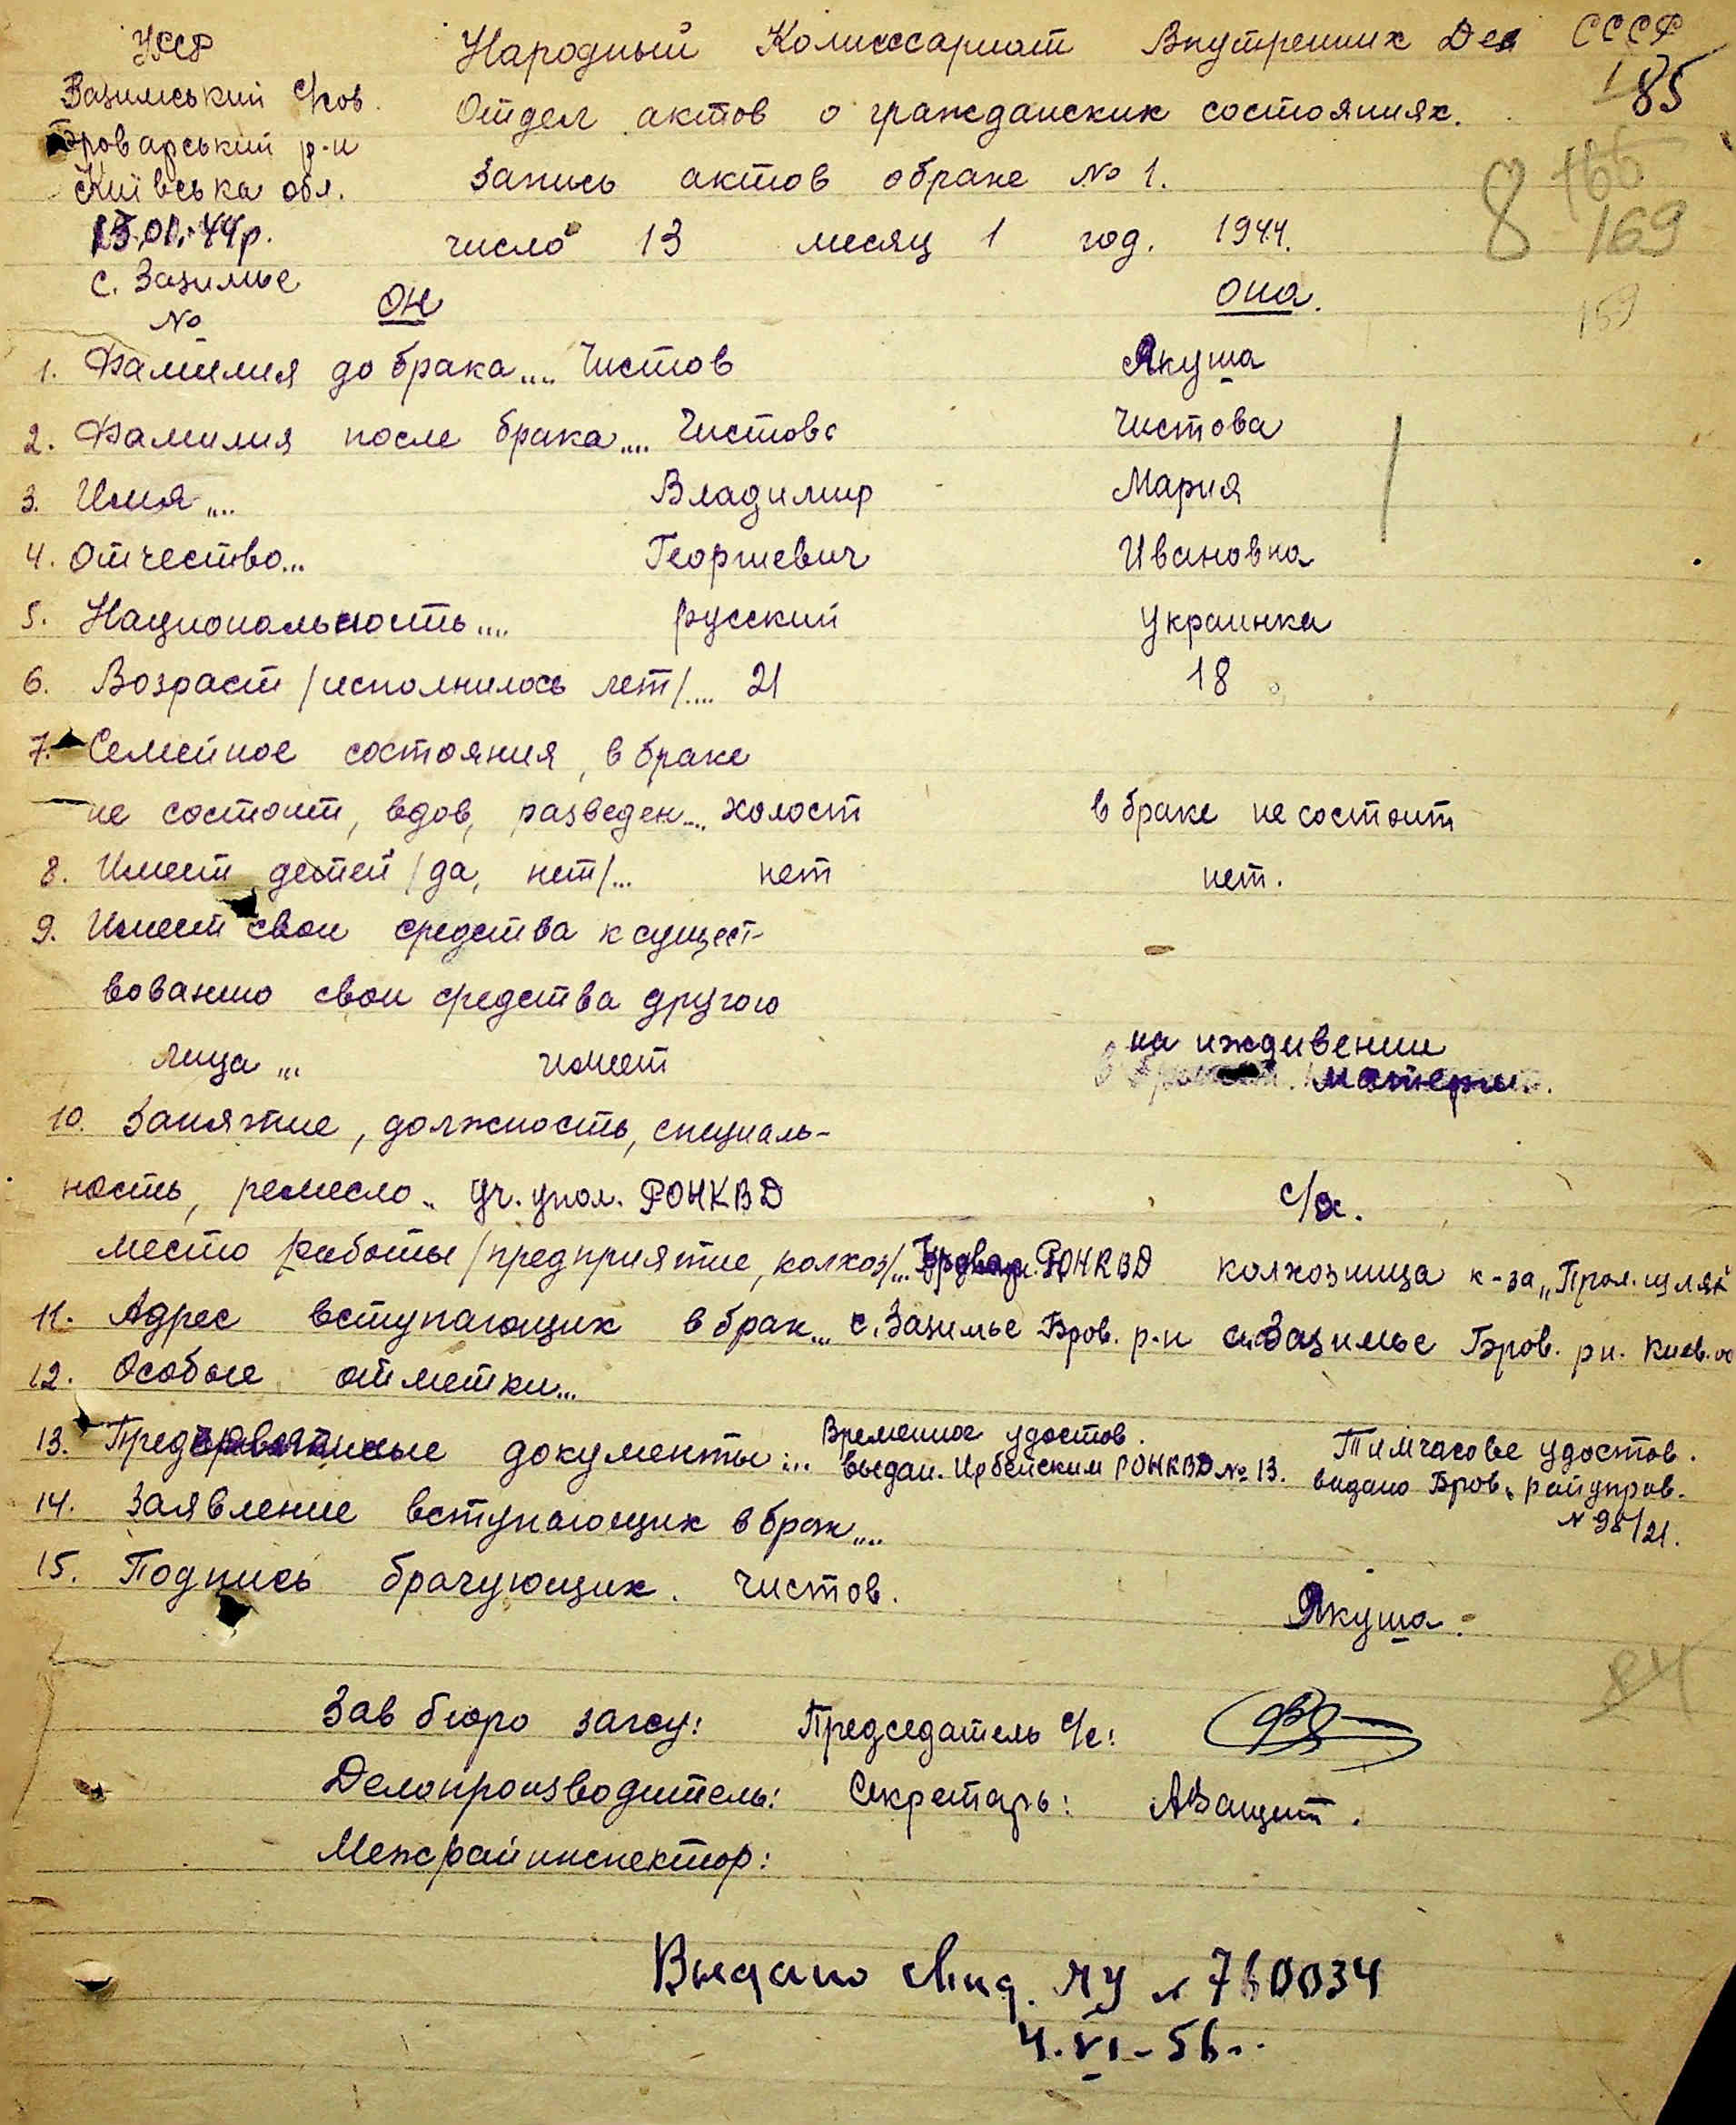 УССР
Народный Комиссариат Внутренних Дел СССР
185
Зазимський с/ков.
Отдел актов о гражданских состояниях.
Броварський р-н
Київська обл.
Запись актов обраке № 1.
8 166
169
13.01.44р.
число 13 месяц 1 год. 1944.
с. Зазимье
159
№ он она.
1. Фамилия до брака.... Чистов Якуша
2. Фамилия после брака.... Чистов Чистова
3. Имя.... Владимир Мария
4. Отчество... Георгиевич Ивановна
5. Национальность.... русский Украинка
6. Возраст /исполнилось лет/.... 21 18
7. Семейное состояния, в браке
не состоит, вдов, разведен.... холост в браке не состоит
8. Имеет детей /да, нет/... нет нет.
9. Имеет свои средства к сущест-
вованию свои средства другого
на иждивении
лица ... имеет матери.
10. Занятие, должность, специаль-
ность, ремесло.. Уч. упол. РОНКВД с/х.
Место работы /предприятие, колхоз/... РОНКВД колхозница к-за „Прол. шлях"
11. Адрес вступающих в брак... с. Зазимье Бров. р-н с. Зазимье Бров. рн. Киев. о
12. Особые отметки...
Временное удостов. Тимчасовье удостов.
13. документы:... выдан. Ирбейским РОНКВД № 13. видано Бров. райупров.
№ 95/21.
14. Заявление вступающих в брак....
15. Подпись брачующих. Чистов. Якуша.
84
Зав бюро загсу: Председатель с/с:
Делопроизводитель: Секретарь: АЗащит.
Межрайинспектор:
Выдано свид. МУ № 760034
4.VI-56г.